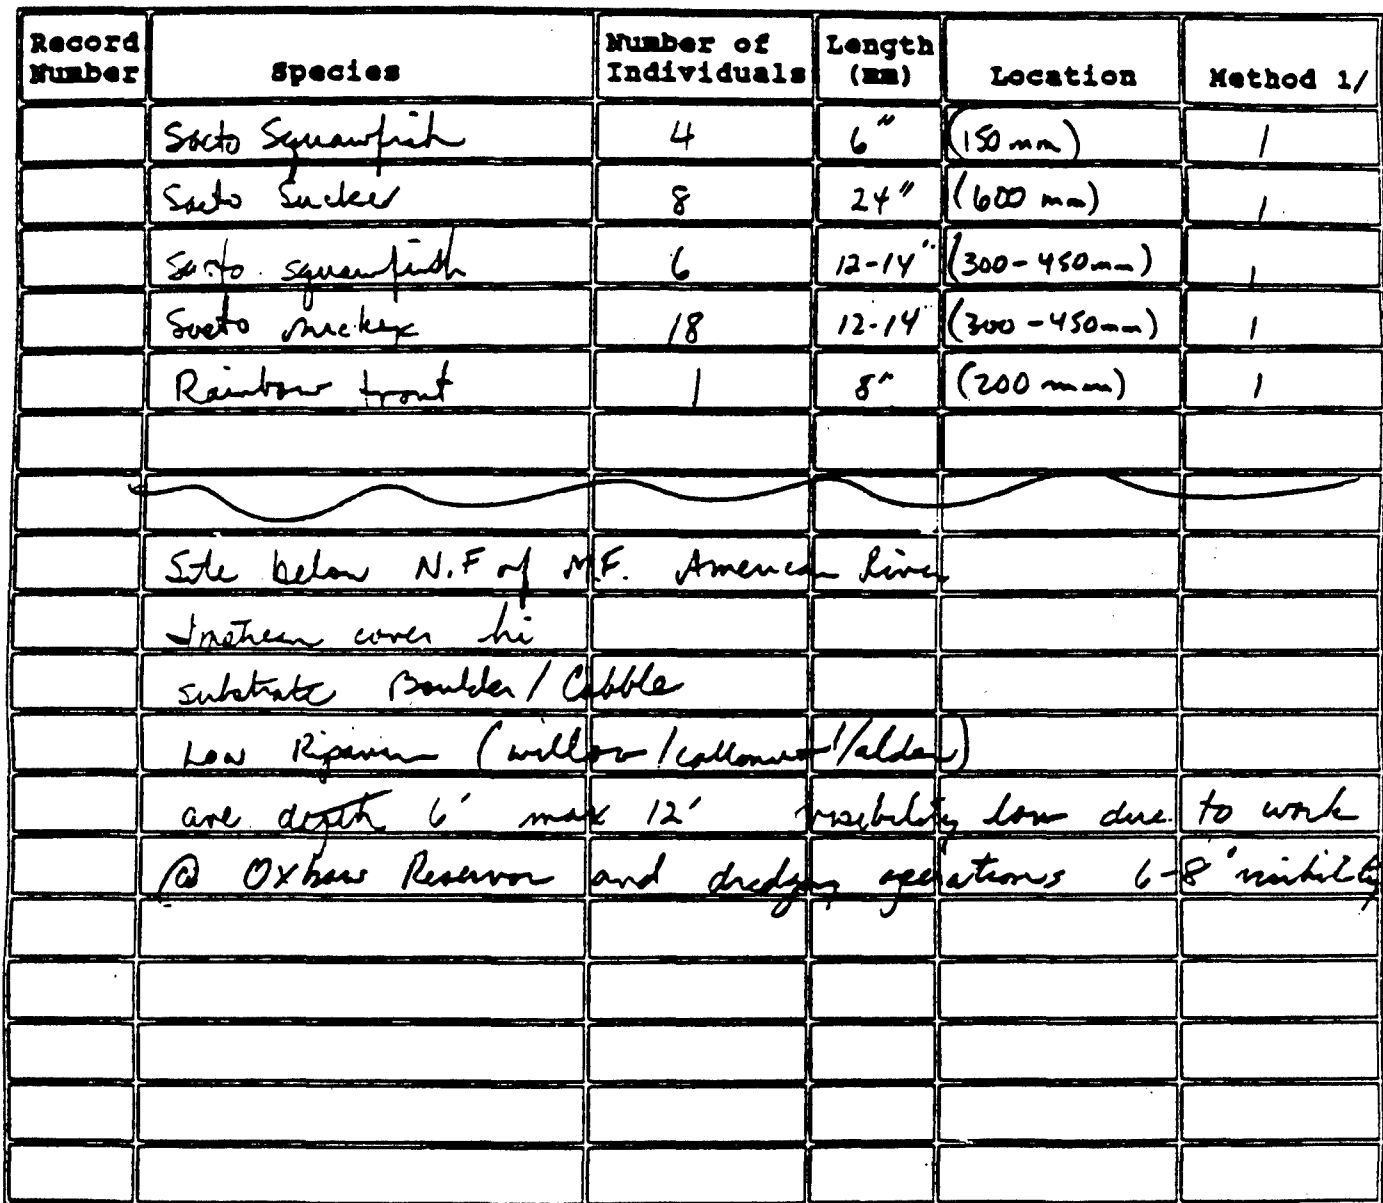 Record Number Species Number of Individuals Length (mm) Location Method 1/
Sacto Squawfish 4 6" (150 mm) 1
Sacto Sucker 8 24" (600 mm) 1
Sacto. squawfish 6 12-14" (300-450mm) 1
Sacto sucker 18 12-14" (300-450mm) 1
Rainbow trout 1 8" (200 mm) 1
Site below N.F of M.F. American River
Instream cover hi
substrate Boulder / Cobble
Low Riparian (willow/cottonwood/alder)
ave depth 6' max 12' visibility low due to work
@ Oxbow Reservoir and dredging operations 6-8' visibility